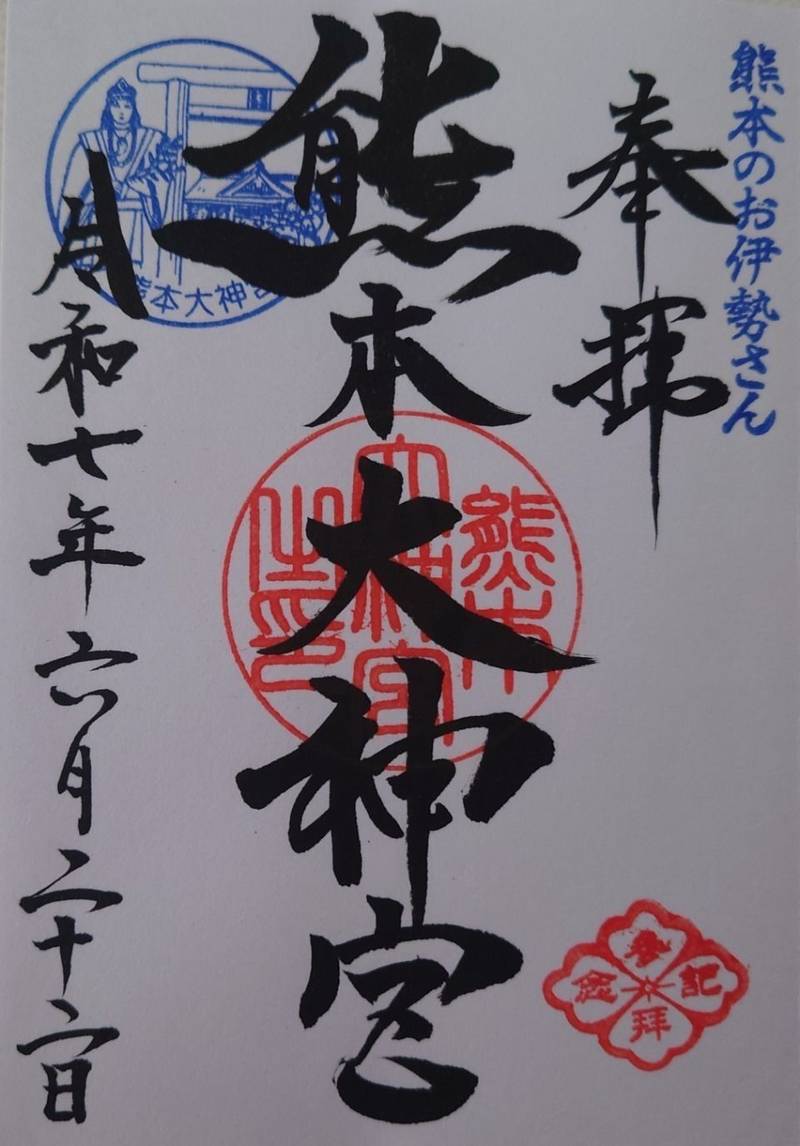 熊本のお伊勢さん
奉拝
熊本大神宮
令和七年六月二十二日
熊本大神宮
熊本
大神宮
之印
参拝
記念